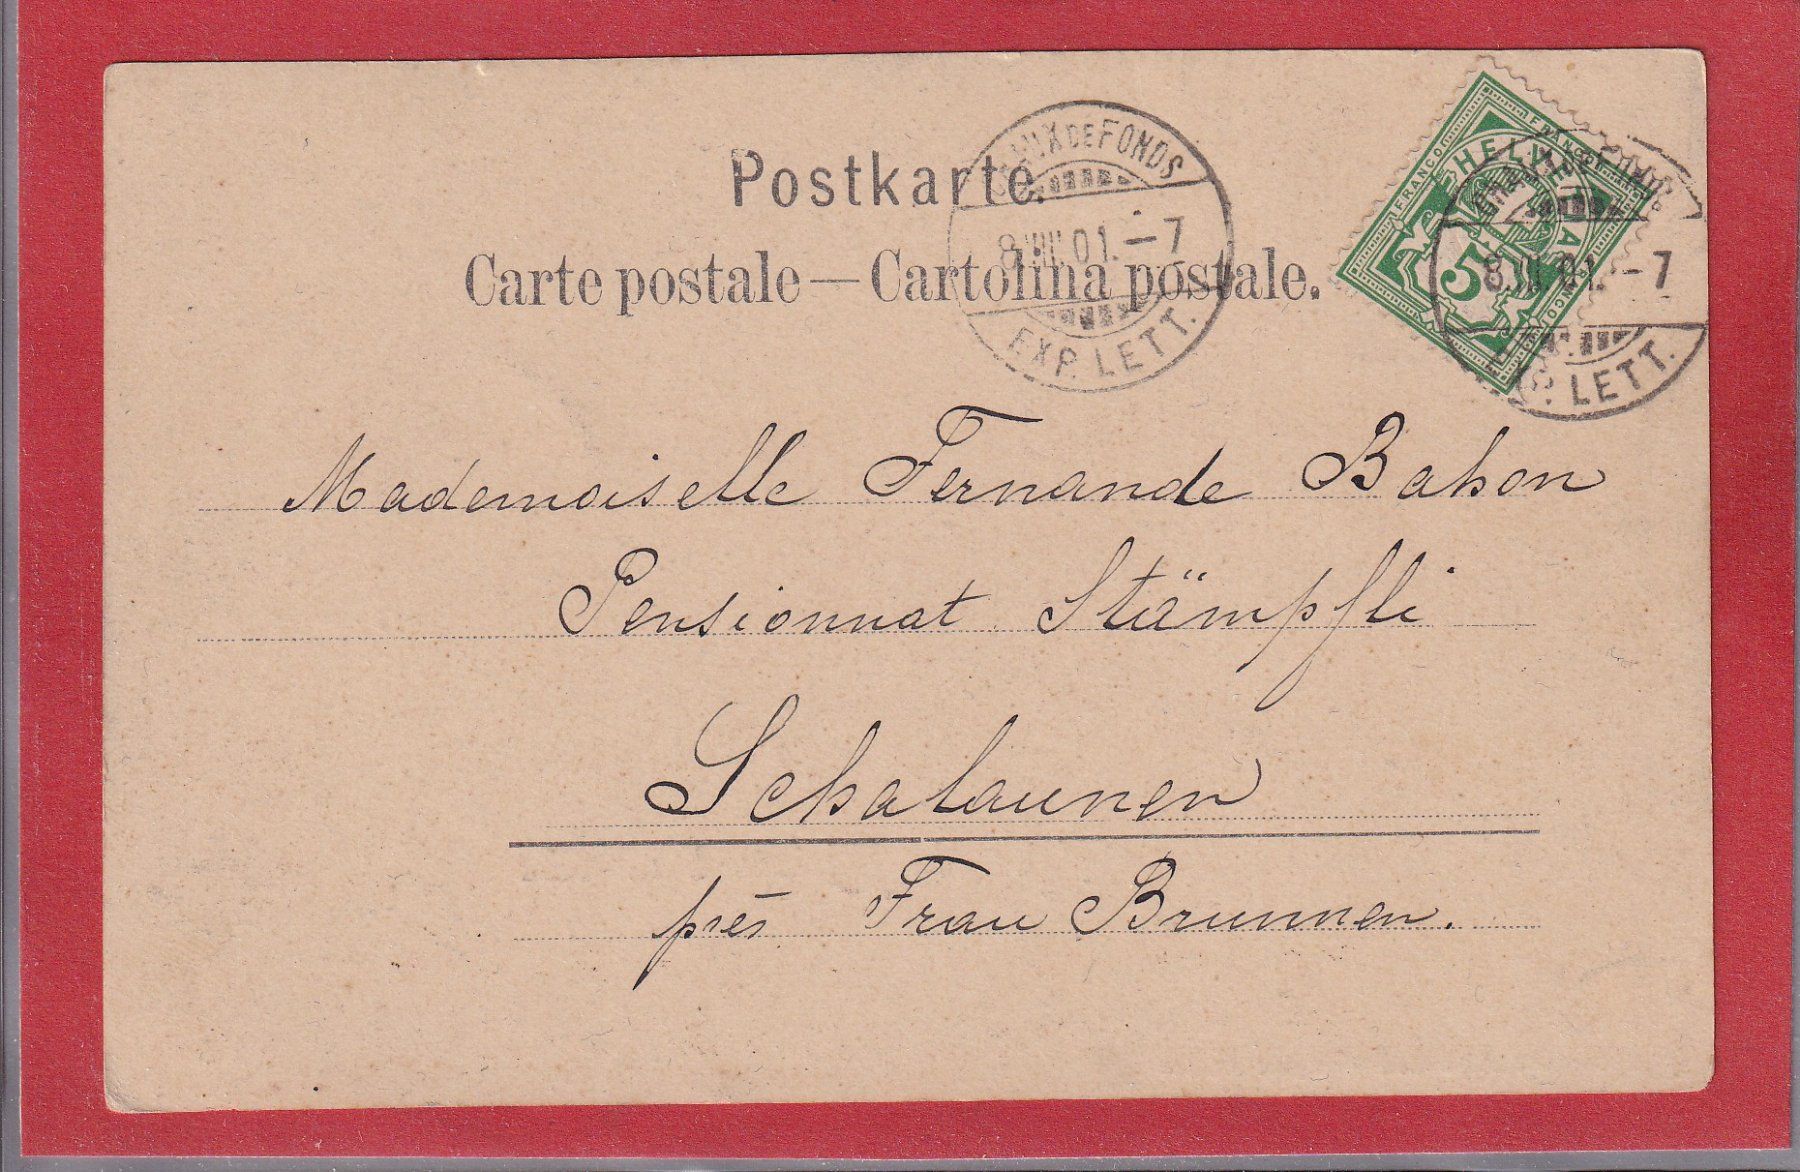 Postkarte.
Carte postale — Cartolina postale.
UX DE FONDS
8.VIII.01.–7
EXP. LETT.
FRANCO
HELVETIA
FRANCO
5
01.–7
LETT.
Mademoiselle Fernande Bahon
Pensionnat Stämpfli
Schalaunen
près Frau Brunnen.